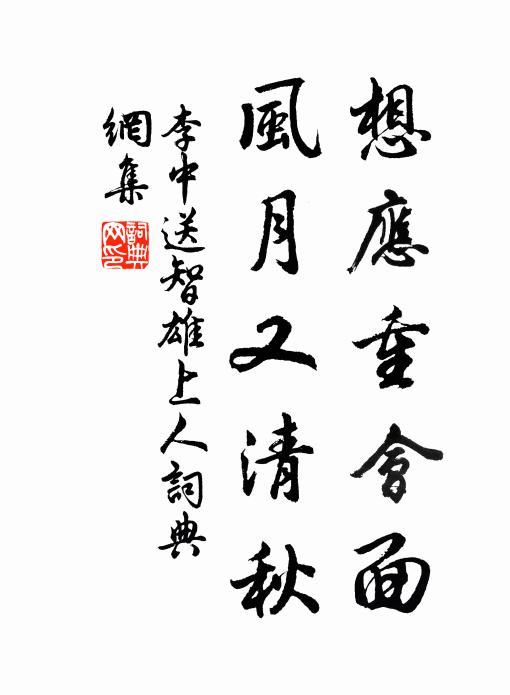 想應重會面
風月又清秋
李中送智雄上人詞典
網集
詞典
网印